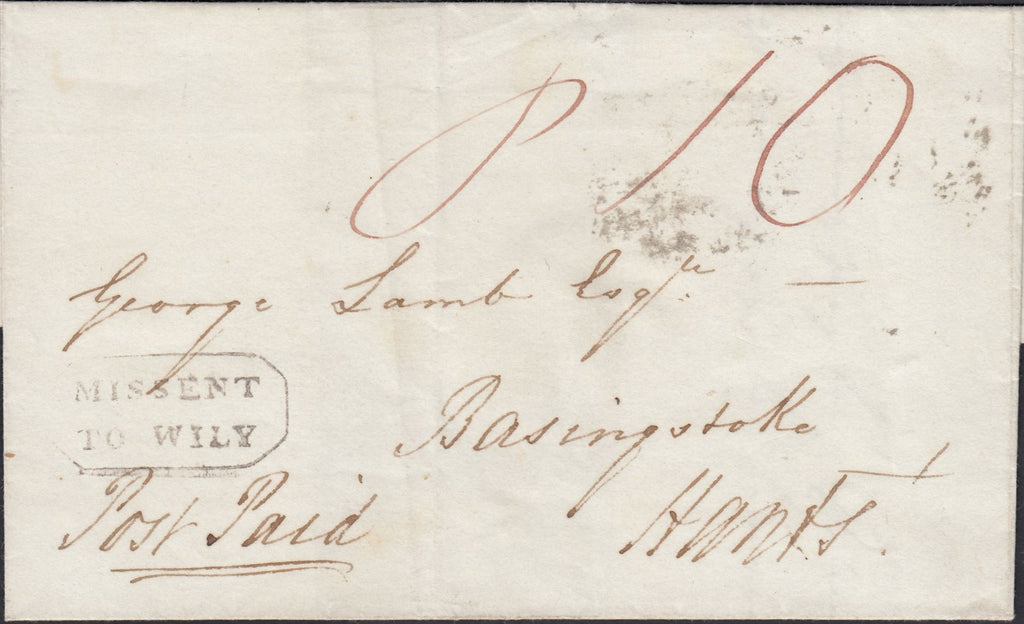 P 10
George Lamb Esqre —
MISSENT
TO WILY
Basingstoke
Post Paid
Hants.